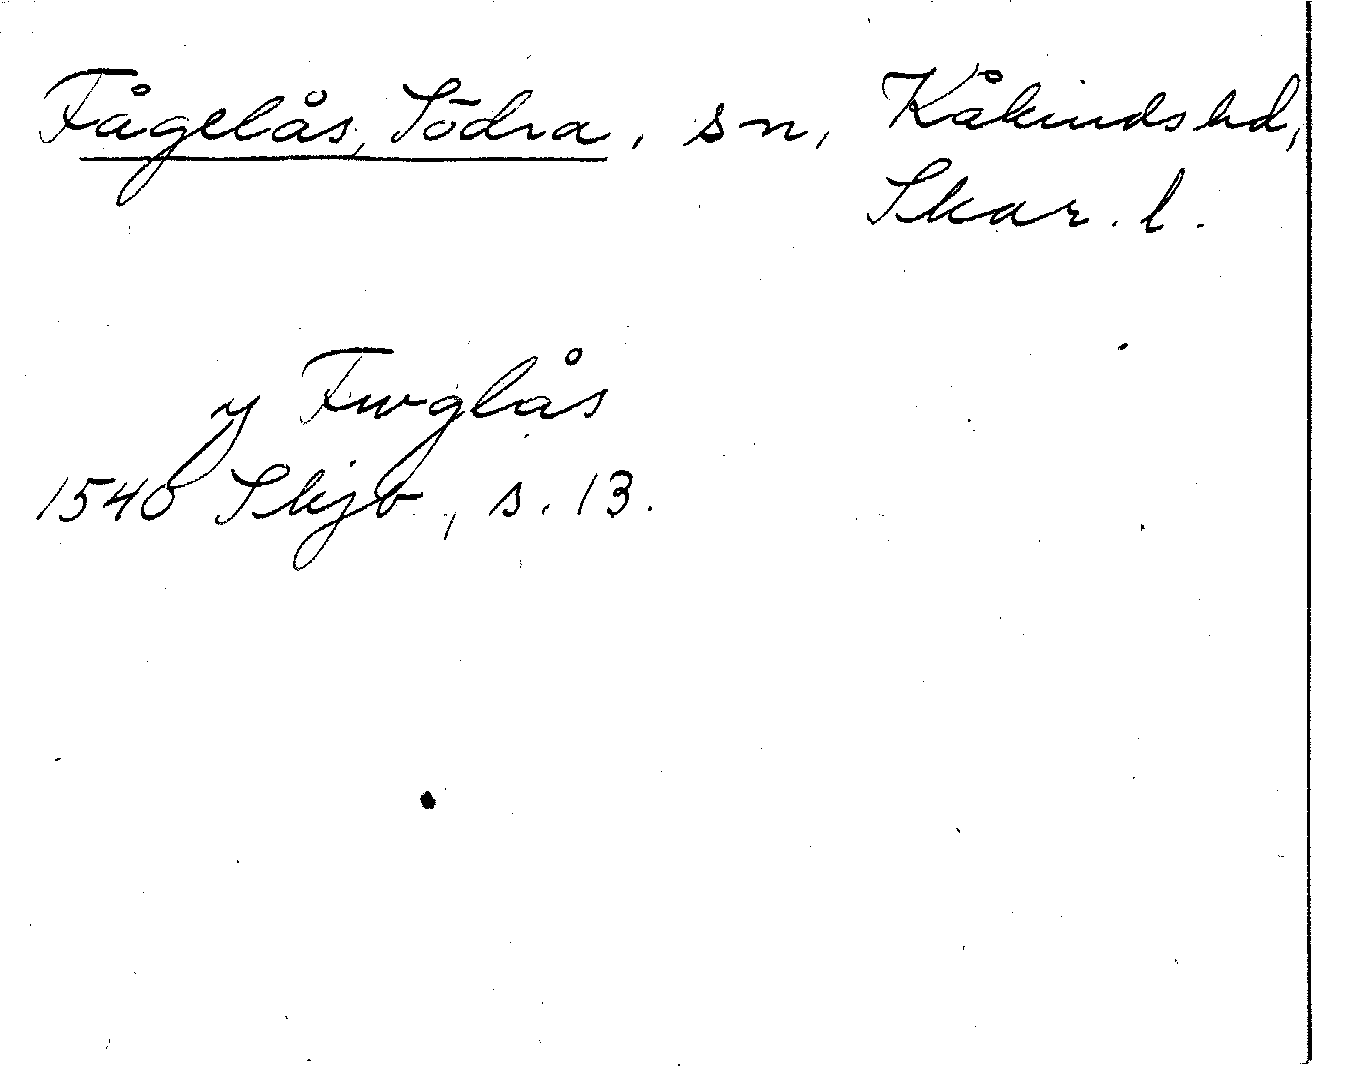 Fågelås, Södra, sn, Kåkinds hd,
Skar. l.
y Fwglås
1540 Skjb, s. 13.